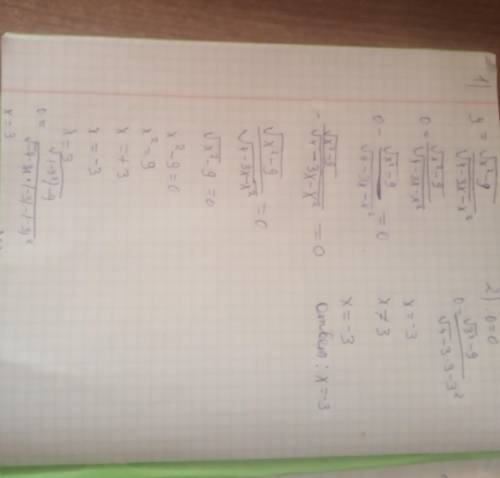 1) y = √x²-9 / √4-3x-x²
0 = √x²-9 / √4-3x-x²
0 - √x²-9 / √4-3x-x² = 0
- √x²-9 / √4-3x-x² = 0
√x²-9 / √4-3x-x² = 0
√x²-9 = 0
x²-9=0
x²=9
x=+3
x=-3
x=3
0 = √(-3)²-9 / √4-3·(-3)-(-3)²
x=3
2) 0=0
0= √3²-9 / √4-3·3-3²
x=-3
x≠3
x=-3
Ответ: x=-3